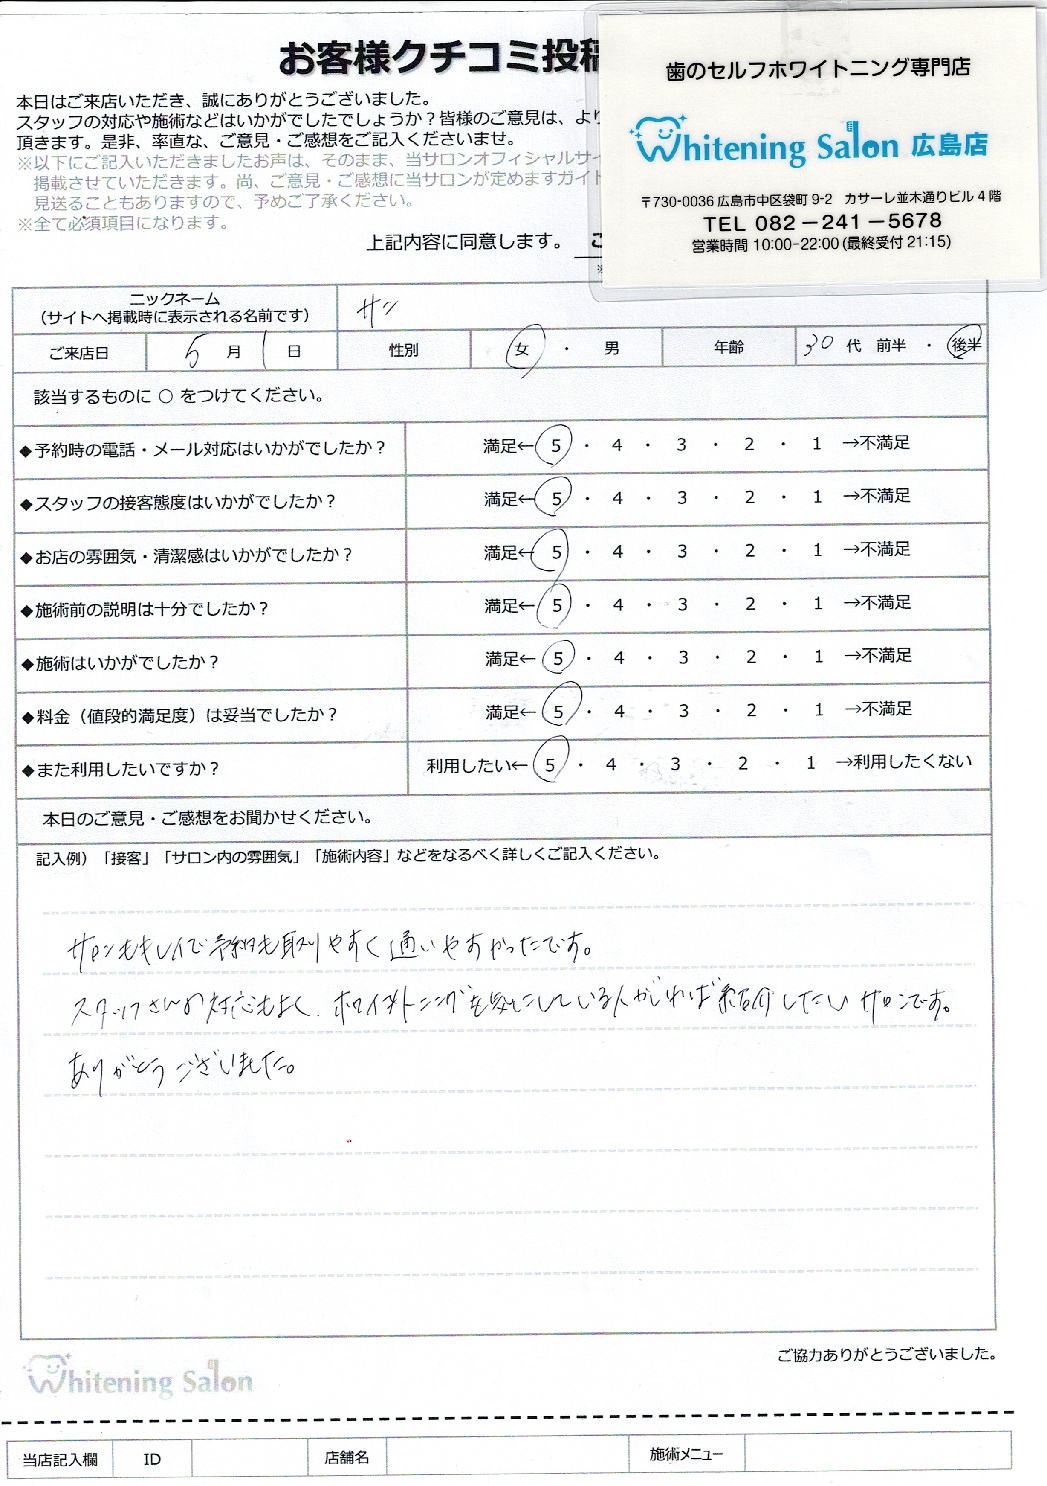 お客様クチコミ投稿
歯のセルフホワイトニング専門店
Whitening Salon 広島店
〒730-0036 広島市中区袋町 9-2 カサーレ並木通りビル 4 階
TEL 082-241-5678
営業時間 10:00-22:00 (最終受付 21:15)
本日はご来店いただき、誠にありがとうございました。
スタッフの対応や施術などはいかがでしたでしょうか?皆様のご意見は、より
頂きます。是非、率直な、ご意見・ご感想をご記入くださいませ。
※以下にご記入いただきましたお声は、そのまま、当サロンオフィシャルサイ
掲載させていただきます。尚、ご意見・ご感想に当サロンが定めますガイド
見送ることもありますので、予めご了承ください。
※全て必須項目になります。
上記内容に同意します。
ニックネーム
(サイトへ掲載時に表示される名前です)
サン
ご来店日 5 月 1 日 性別 女 ・ 男 年齢 30 代 前半 ・ 後半
該当するものに ○ をつけてください。
◆予約時の電話・メール対応はいかがでしたか? 満足← 5 ・ 4 ・ 3 ・ 2 ・ 1 →不満足
◆スタッフの接客態度はいかがでしたか? 満足← 5 ・ 4 ・ 3 ・ 2 ・ 1 →不満足
◆お店の雰囲気・清潔感はいかがでしたか? 満足← 5 ・ 4 ・ 3 ・ 2 ・ 1 →不満足
◆施術前の説明は十分でしたか? 満足← 5 ・ 4 ・ 3 ・ 2 ・ 1 →不満足
◆施術はいかがでしたか? 満足← 5 ・ 4 ・ 3 ・ 2 ・ 1 →不満足
◆料金(値段的満足度)は妥当でしたか? 満足← 5 ・ 4 ・ 3 ・ 2 ・ 1 →不満足
◆また利用したいですか? 利用したい← 5 ・ 4 ・ 3 ・ 2 ・ 1 →利用したくない
本日のご意見・ご感想をお聞かせください。
記入例)「接客」「サロン内の雰囲気」「施術内容」などをなるべく詳しくご記入ください。
サロンもキレイで予約も取りやすく通いやすかったです。
スタッフさんの対応もよく、ホワイトニングを気にしている人がいれば紹介したいサロンです。
ありがとうございました。
ご協力ありがとうございました。
Whitening Salon
当店記入欄 ID 店舗名 施術メニュー